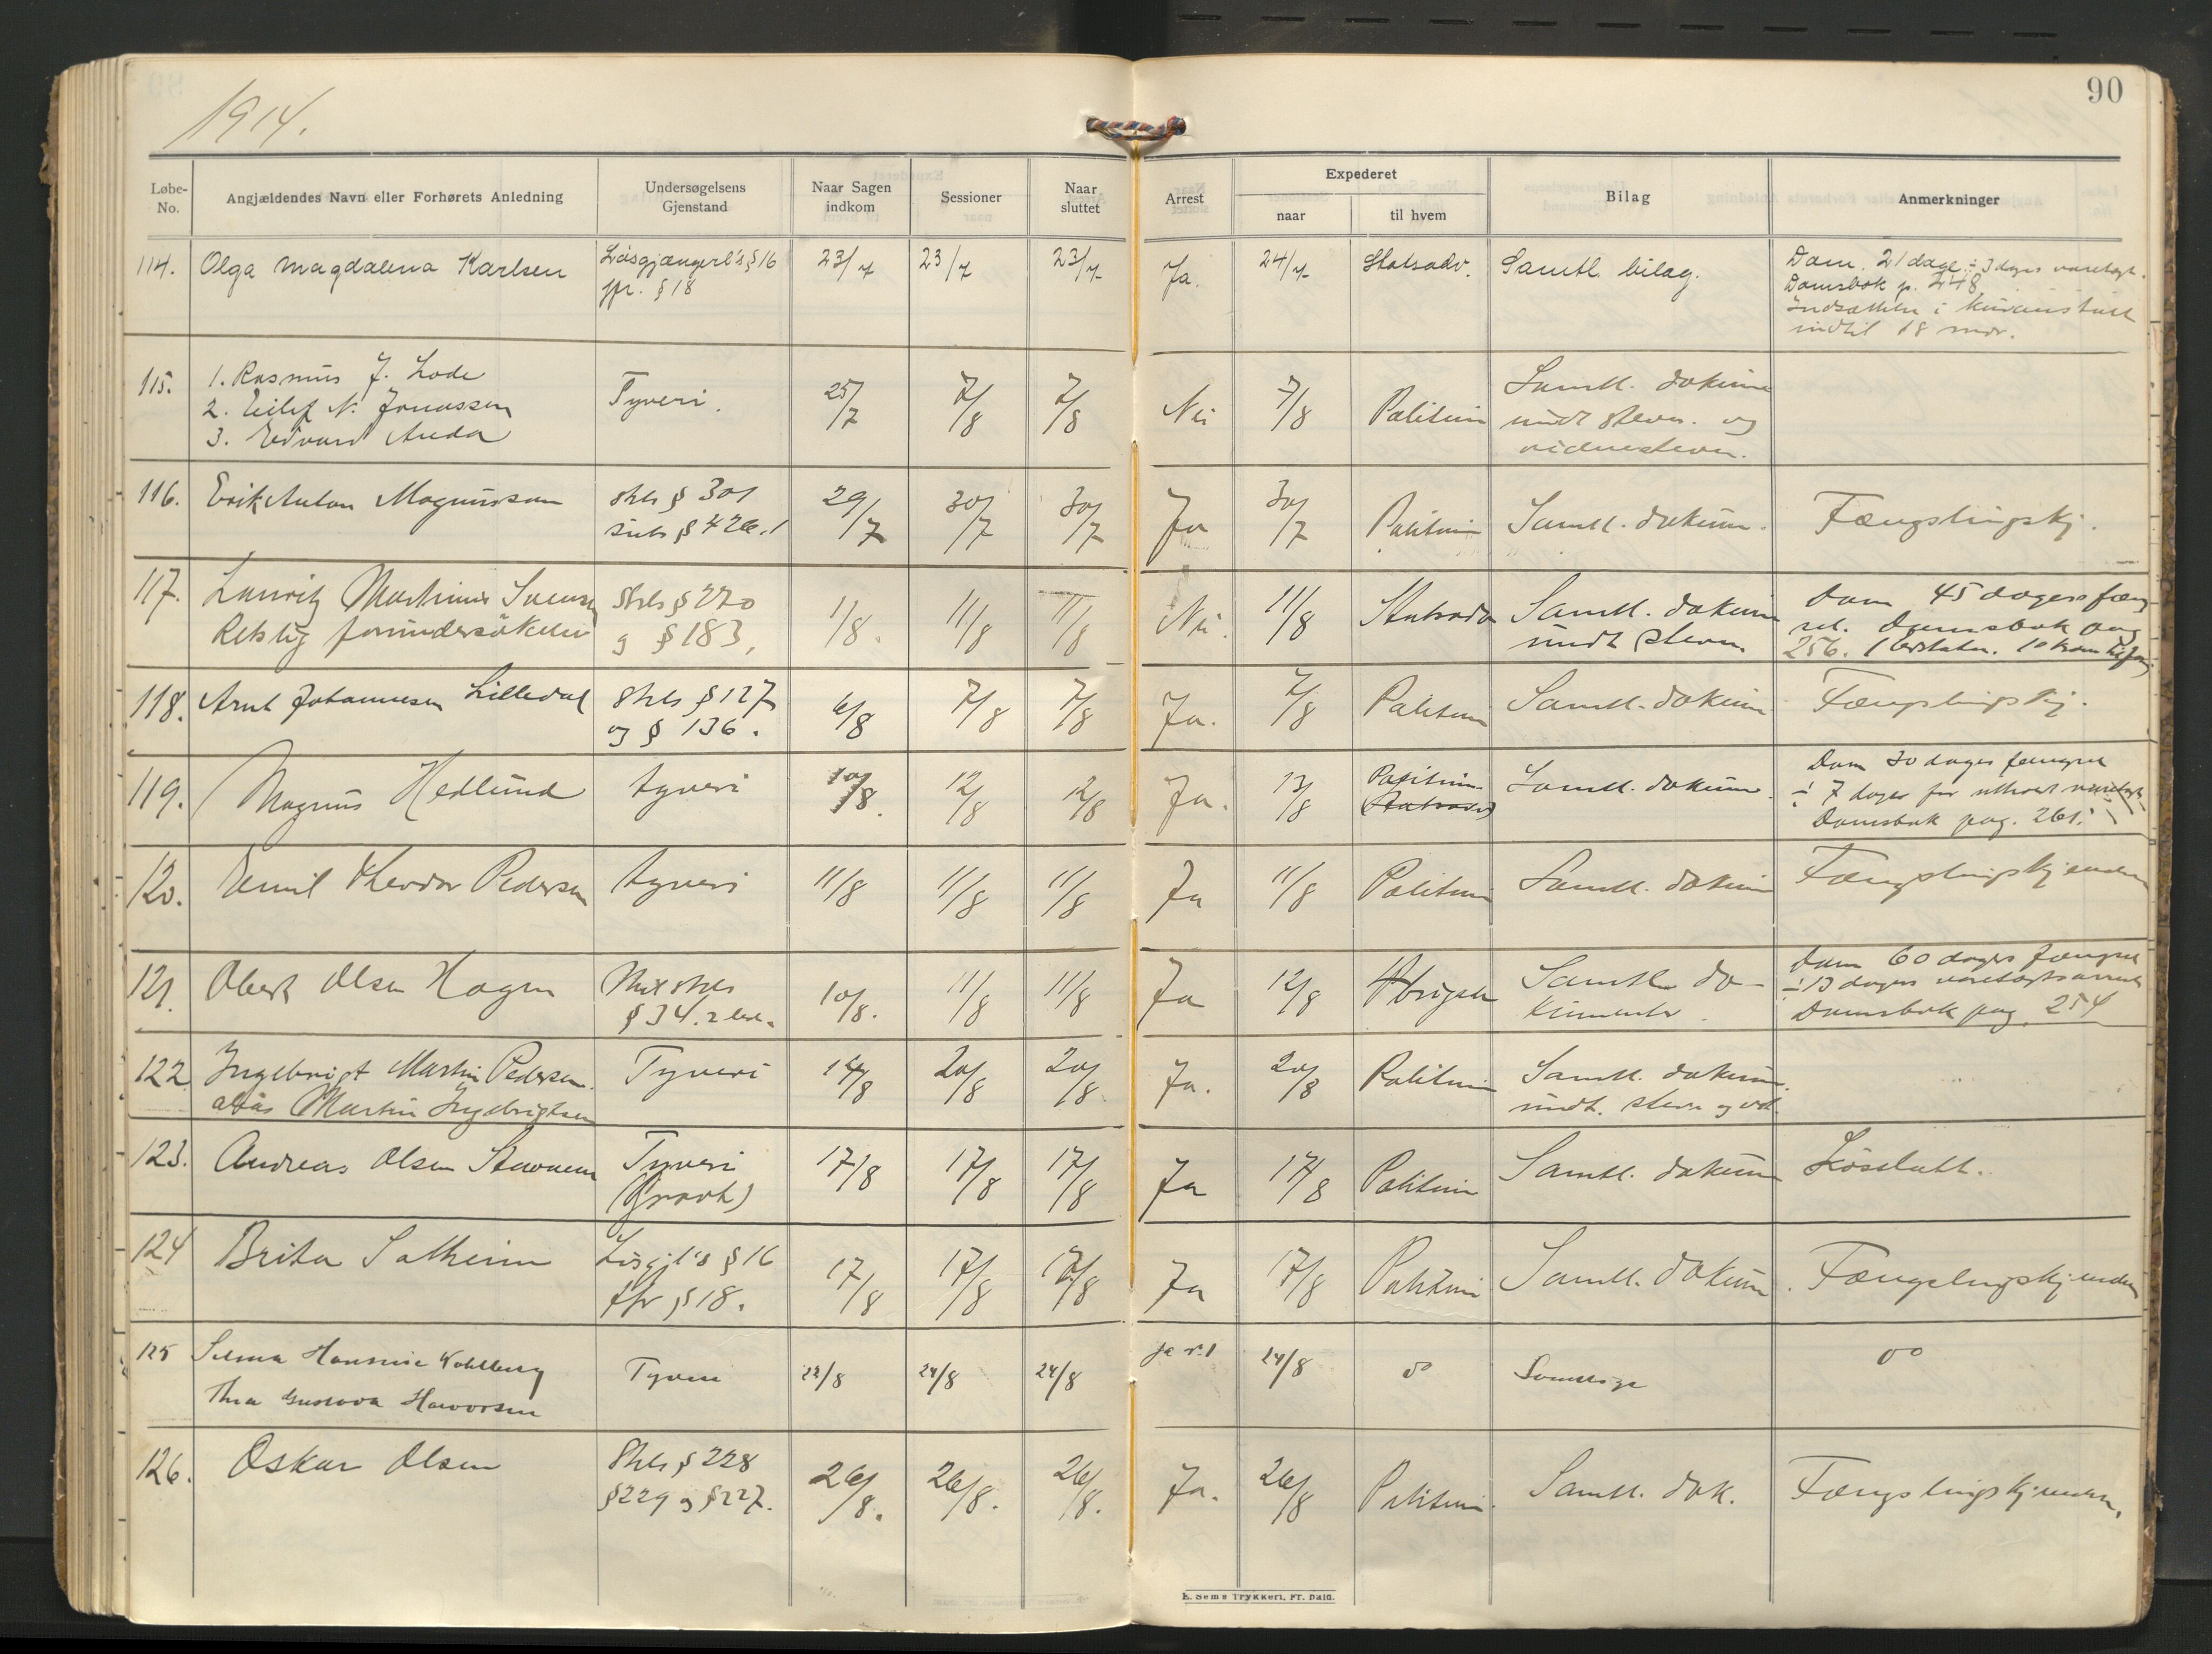 90
1914.
Løbe-No. Angjældendes Navn eller Forhørets Anledning Undersøgelsens Gjenstand Naar Sagen indkom Sessioner Naar sluttet Arrest Expederet naar til hvem Bilag Anmerkninger
114. Olga Magdalena Karlsen Løsgjængerl's § 16 23/7 23/7 23/7 Ja. 24/7 Statsadv. Samtl. bilag. Dom. 21 dage ÷ 3 dages varetægt.
jfr. § 18 Domsbok p. 248
Indsættelse i
indtil 18 mdr.
115. 1. Rasmus J. Lode Tyveri. 25/7 7/8 7/8 Nei 7/8 Politimi Samtl. dokum
2. Eilef N. Jonassen undt stevn. og
3. Edvard Auda vidnestevn.
116. Erik Anton Magnusson Strls § 301 29/7 30/7 30/7 Ja 30/7 Politimi Samtl. dokum. Fængslingskj.
subs § 426.1
117. Lauritz Martinus Svensen Strls § 270 1/8. 11/8 11/8 Nei. 11/8 Statsadv Samtl. dokum Dom 45 dages fæng
Retslig forundersøkelse og § 183, undt stevn. sel. Domsbok pag
256.
118. Arnt Johannesen Lilledal Strls § 127 6/8 7/8 7/8 Ja. 7/8 Politimi Samtl. dokum Fængslingskj.
og § 136.
119. Magnus Hedlund tyveri 10/8. 12/8 12/8 Ja. 13/8 Politimi Samtl. dokum. Dom 30 dages fængsel
Statsadv ÷ 7 dager for utholdt varetægt
Domsbok pag. 261.
120. Emil Theodor Pedersen tyveri 11/8 11/8 11/8 Ja 11/8 Politimi Samtl. dokum Fængslingskjendelse
121. Obert Olsen Hagen Mil strls 10/8. 11/8 11/8 Ja 12/8 Samtl. do- Dom 60 dages fængsel
§ 34. 2 led. kumenter. ÷ 13 dagers varetægtsarrest
Domsbok pag. 254
122. Ingebrigt Martin Pedersen Tyveri 14/8 20/8 20/8 Ja. 20/8 Politimi Samtl. dokum.
alias Martin Ingebrigtsen undt. stevn og
123. Andreas Olsen Stavnem Tyveri 17/8 17/8 17/8 Ja 17/8 Politimi Samtl. dokum Løslatt.
(grovt)
124 Brita Solheim Løsgjl's § 16 17/8 17/8 17/8 Ja 17/8 Politimi Samtl. dokum. Fængslingskjendelse
jfr § 18.
125 Selma Hansine Tyveri 22/8 24/8 24/8 ja v. 1 24/8 do Samtlige do
Thea Gustava Halvorsen
126. Oskar Olsen Strls § 228 26/8. 26/8. 26/8. Ja. 26/8 Politimi. Samtl. dok. Fængslingskjendelse.
§ 229 og § 227.
E. Sems Trykkeri, Fr. hald.